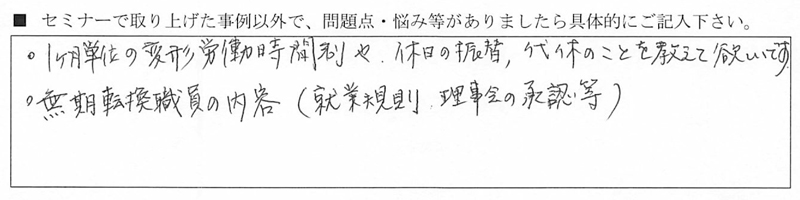 ■ セミナーで取り上げた事例以外で、問題点・悩み等がありましたら具体的にご記入下さい。
○ 1ヶ月単位の変形労働時間制や、休日の振替，代休のことを教えて欲しいです
○ 無期転換職員の内容（就業規則、理事会の承認等）